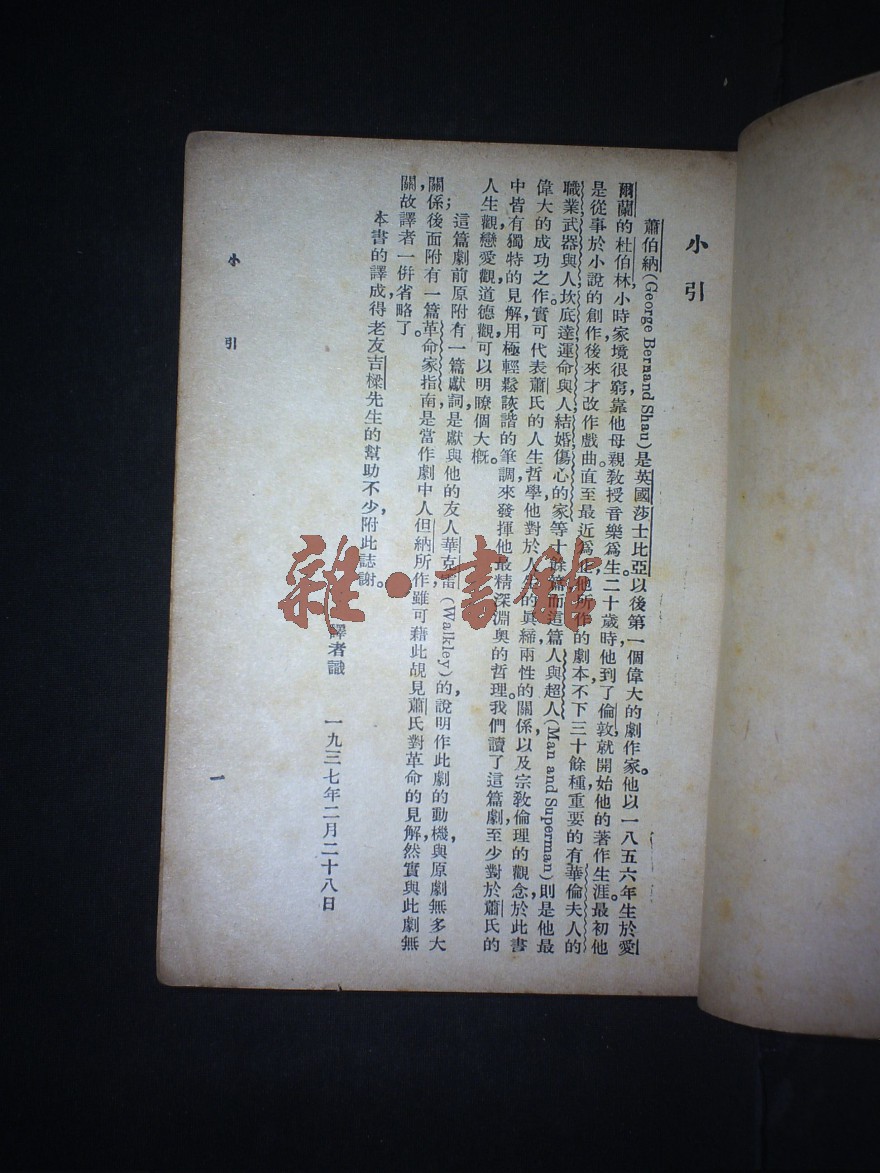 小引
蕭伯納(George Bernand Shau)是英國莎士比亞以後第一個偉大的劇作家。他以一八五六年生於愛
爾蘭的杜伯林，小時家境很窮，靠他母親教授音樂爲生。二十歲時，他到了倫敦，就開始他的著作生涯。最初他
是從事於小說的創作，後來才改作戲曲。直至最近爲止，他所作的劇本不下三十餘種，重要的有華倫夫人的
職業，武器與人，坎底達，運命與人，結婚，傷心的家等十餘篇，而這篇人與超人(Man and Superman)則是他最
偉大的成功之作，實可代表蕭氏的人生哲學，他對於人生的眞締，兩性的關係，以及宗敎倫理的觀念，於此書
中皆有獨特的見解，用極輕鬆詼諧的筆調，來發揮他最精深淵奥的哲理。我們讀了這篇劇，至少對於蕭氏的
人生觀，戀愛觀，道德觀，可以明瞭個大概。
這篇劇前原附有一篇獻詞，是獻與他的友人華克雷(Walkley)的，說明作此劇的動機，與原劇無多大
關係；後面附有一篇革命家指南，是當作劇中人但納所作，雖可藉此覘見蕭氏對革命的見解，然實與此劇無
關，故譯者一倂省略了。
本書的譯成，得老友吉樑先生的幫助不少，附此誌謝。
譯者識　一九三七年二月二十八日
小引
一
雜·書館